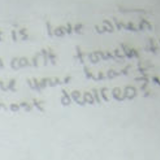 is love when
can't touch t
e your heart
most desires?